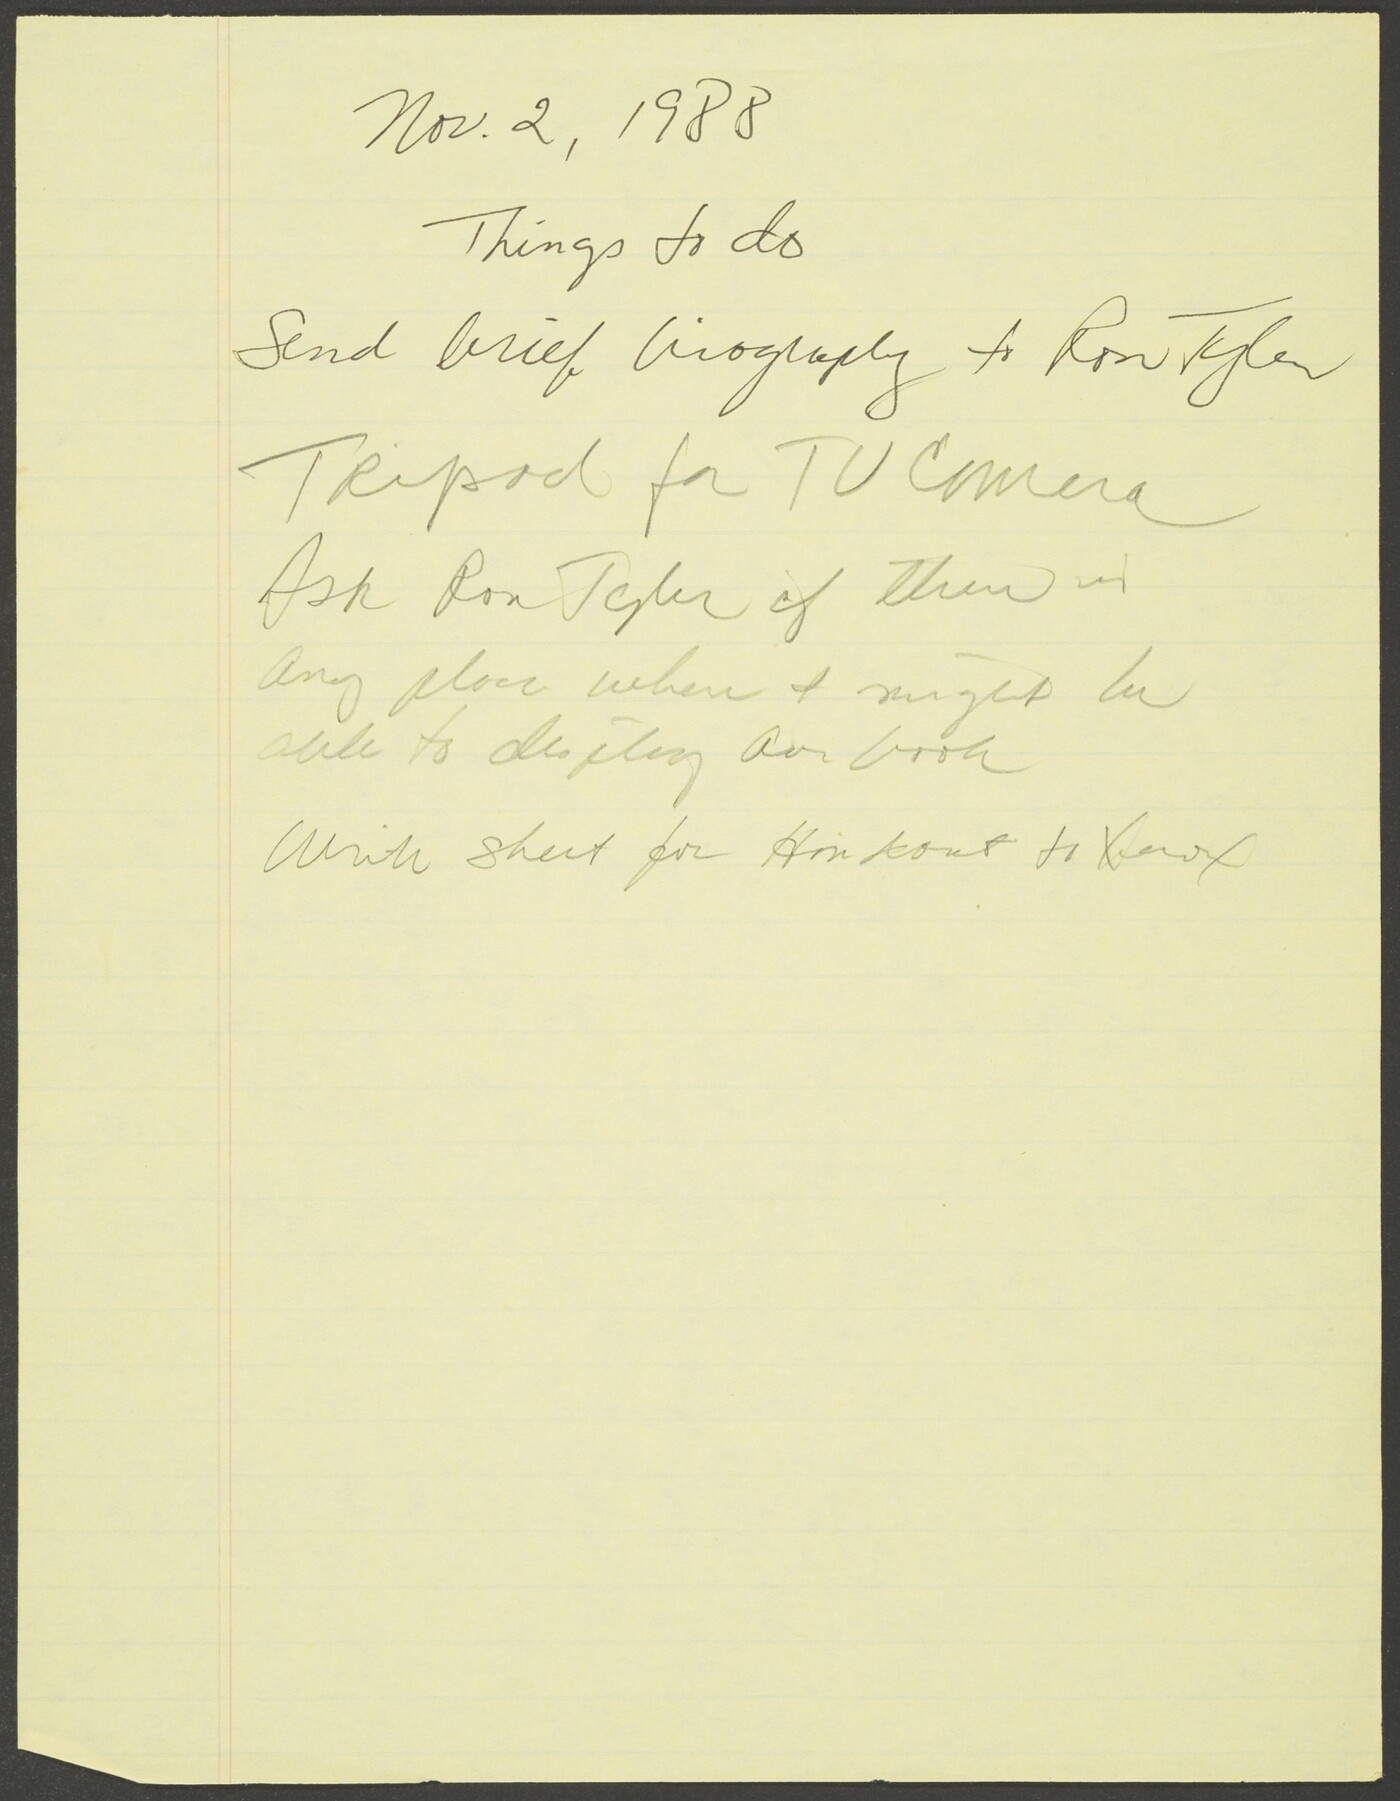 Nov. 2, 1988
Things to do
Send brief biography to Ron Tyler
Tripod for TV Camera
Ask Ron Tyler if there is
any place where I might be
able to display our book
Write sheet for to Xerox